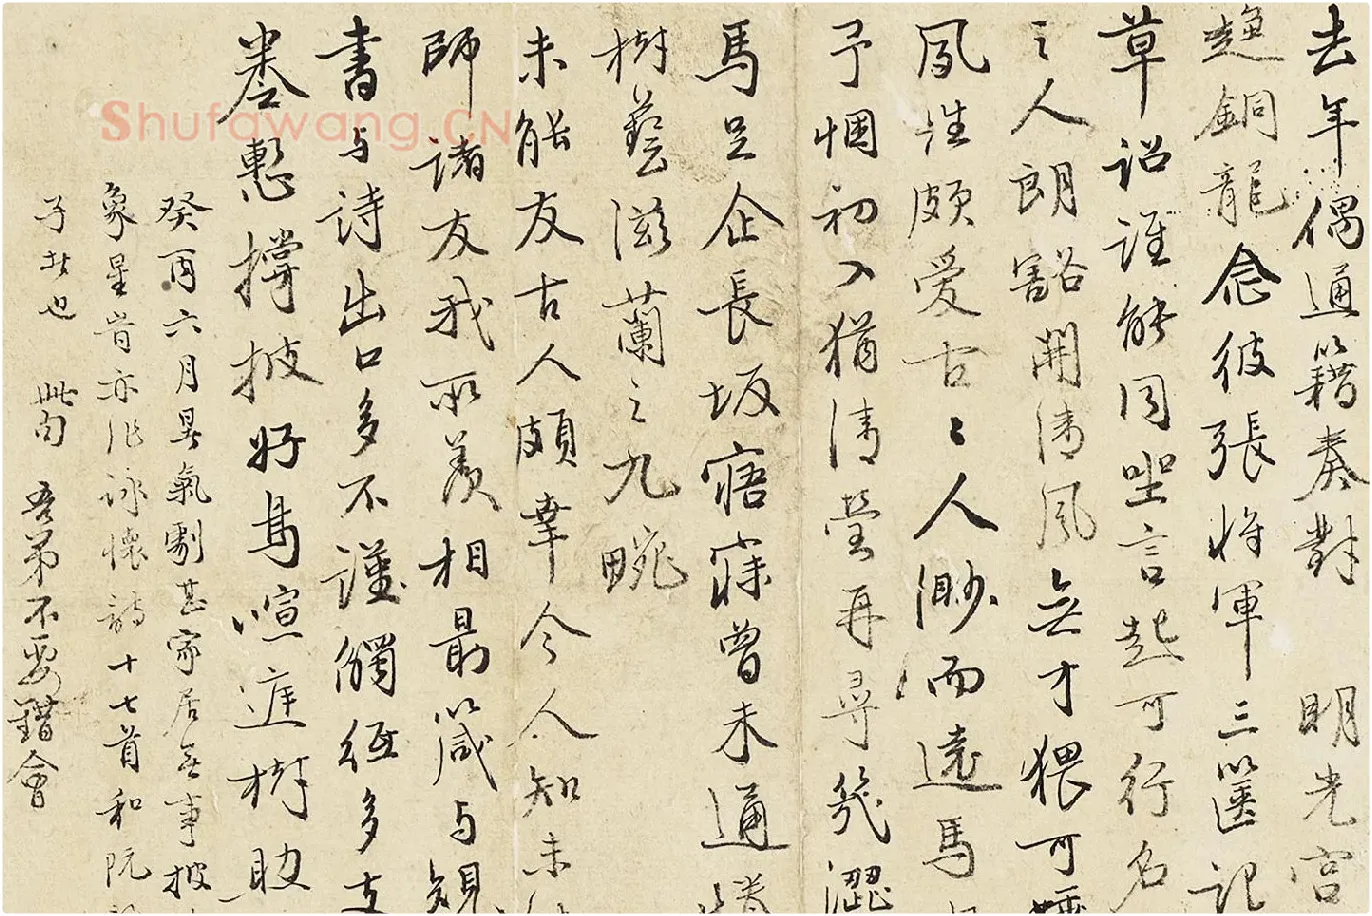 去年偶通籍奏對 明光宮
趨銅龍念彼張將軍三篋記
草詔誰能同坐言起可行名
之人朗豁開清風無才猥可
夙性頗愛古〻人渺而遠馬
予悃初入猶清瑩再尋幾澀
馬足企長坂寤寐曾未通
樹藝滋蘭之九畹
未能友古人頗幸今人知未
師諸友我所羨相最箴与規
書与詩出口多不謹觸征多支
卷慙撐披好鳥喧進樹助
癸酉六月暑氣劇甚家居無事披
象星皆亦作詠懷詩十七首和阮
子者也 此句 吾弟不要錯會
Shufawang.CN